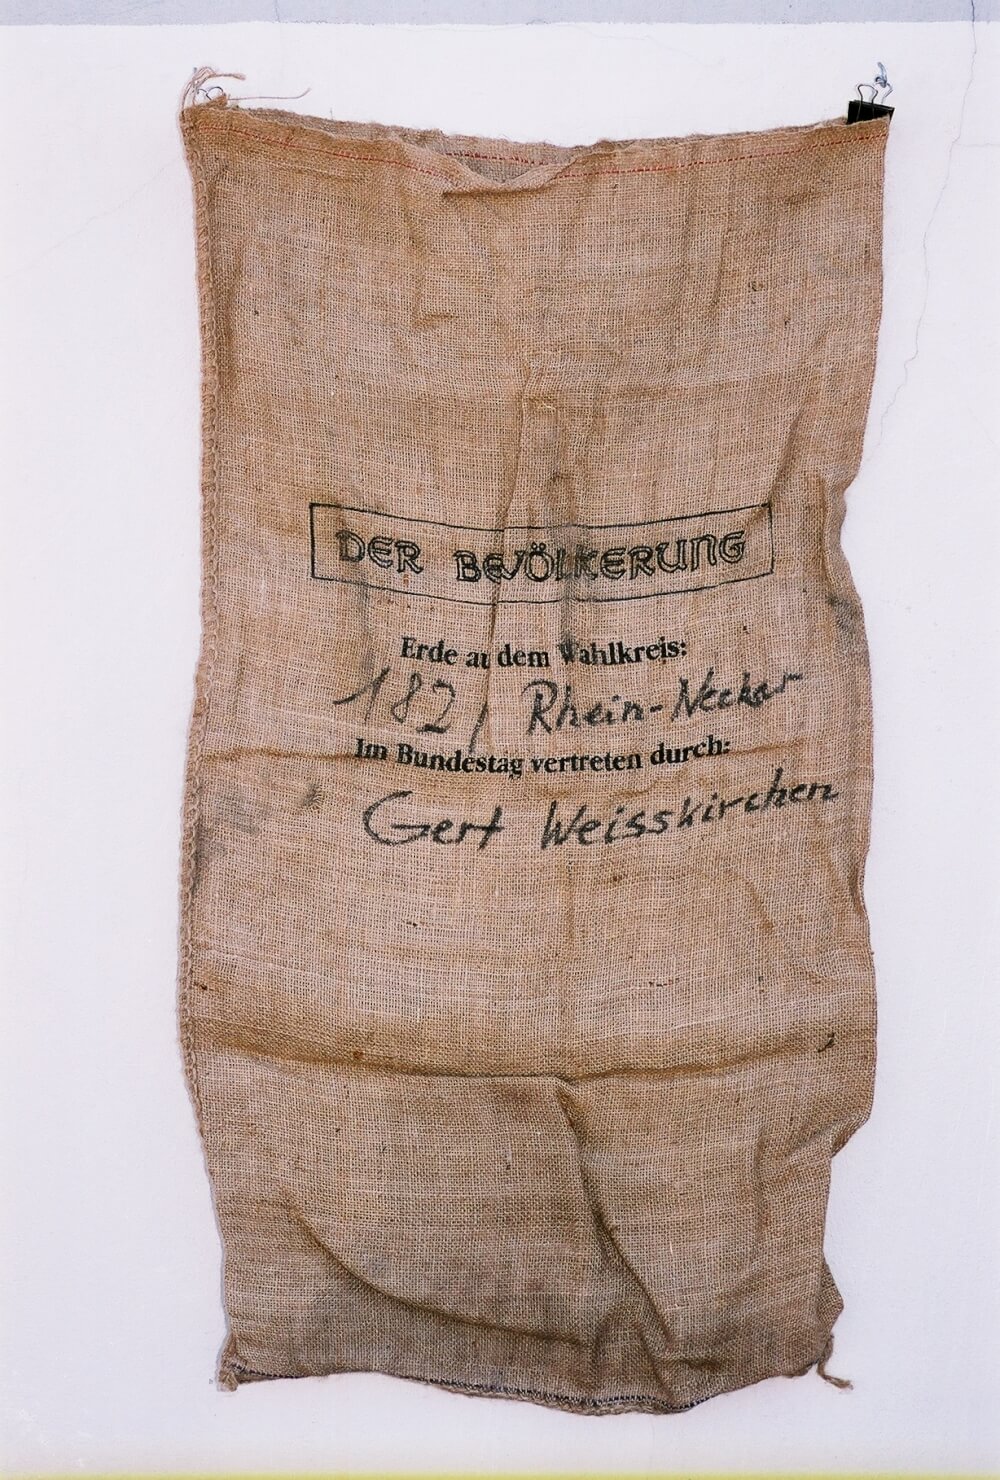 DER BEVÖLKERUNG
Erde aus dem Wahlkreis:
182, Rhein-Neckar
Im Bundestag vertreten durch:
Gert Weisskirchen